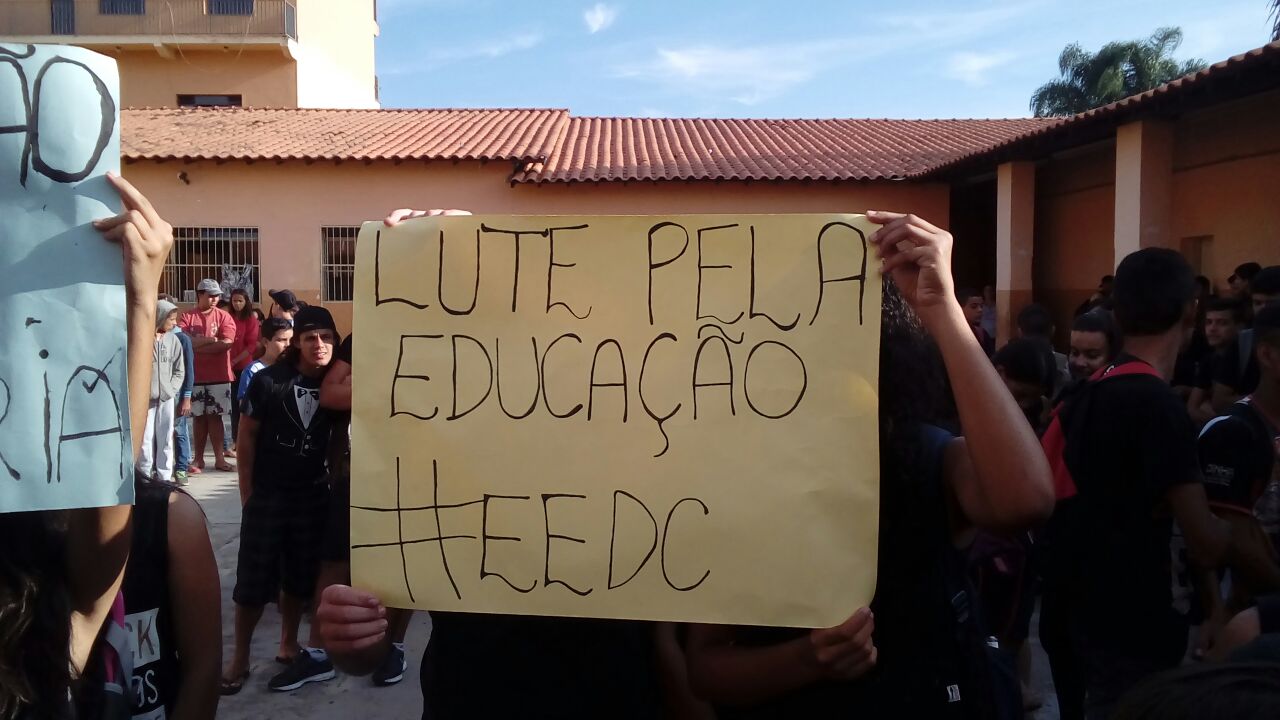 ÃO
RIA
LUTE PELA
EDUCAÇÃO
#EEDC
CK
GS